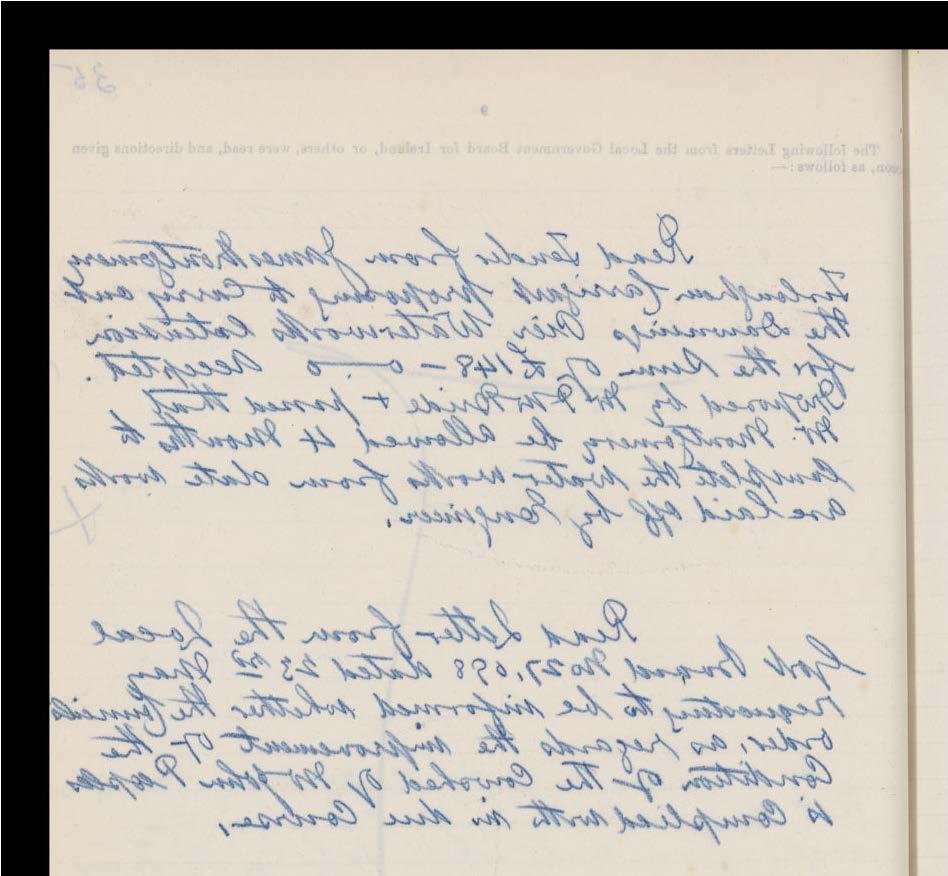 35
9
The following Letters from the Local Government Board for Ireland, or others, were read, and directions given
reon, as follows:—
Read Tender from James Montgomery
Carrigart proposing to Carry out
the Downings Pier Waterworks Extension
for the Sum of £148-0-0 Accepted.
Proposed by Mr McBride & passed that
Mr. Montgomery be allowed 4 Months to
Complete the Waterworks from date works
are laid off by Engineer.
Read Letter from the Local
Govt Board No 27,098 dated 23rd May
requesting to be informed whether the Councils
order, as regards the improvement of the
Condition of the Cowshed of Mr John Peoples
is Complied with in due Course.